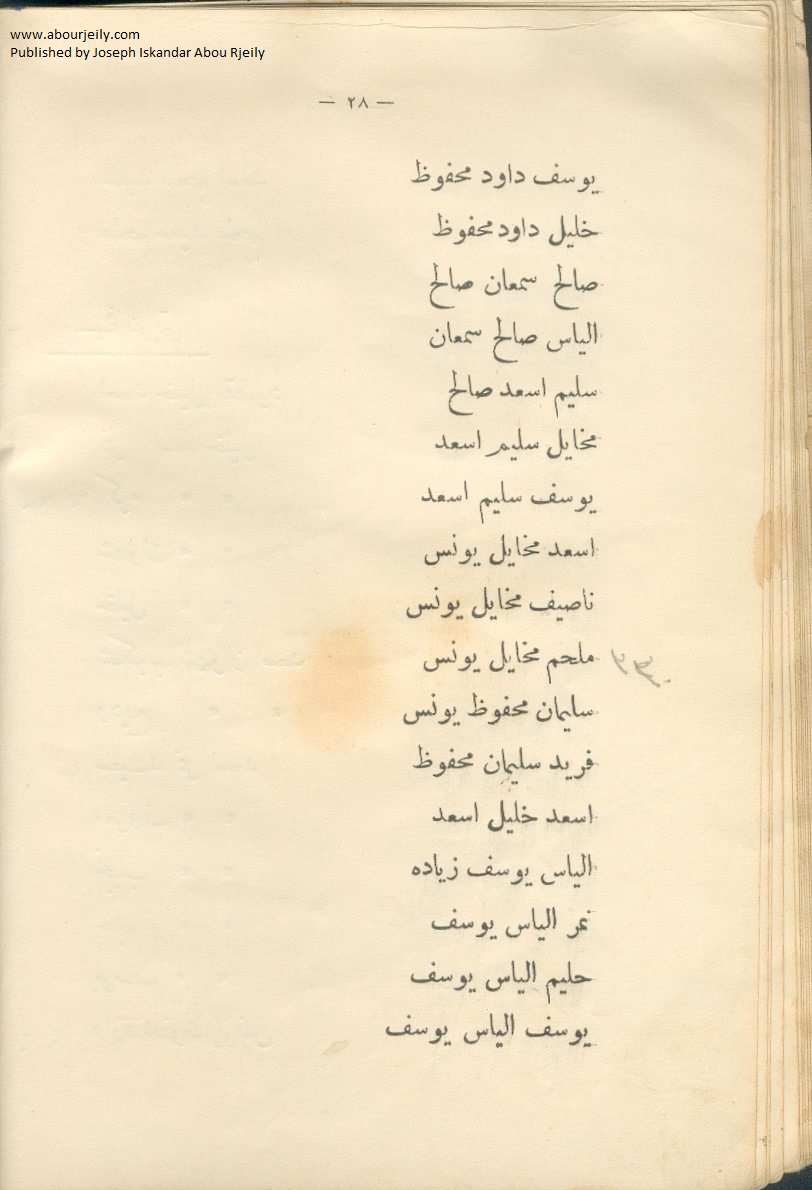 www.abourjeily.com
Published by Joseph Iskandar Abou Rjeily
— ٢٨ —
يوسف داود محفوظ
خليل داود محفوظ
صالح سمعان صالح
الياس صالح سمعان
سليم اسعد صالح
مخايل سليم اسعد
يوسف سليم اسعد
اسعد مخايل يونس
ناصيف مخايل يونس
ملحم مخايل يونس
سليمان محفوظ يونس
فريد سليمان محفوظ
اسعد خليل اسعد
الياس يوسف زياده
نمر الياس يوسف
حليم الياس يوسف
يوسف الياس يوسف